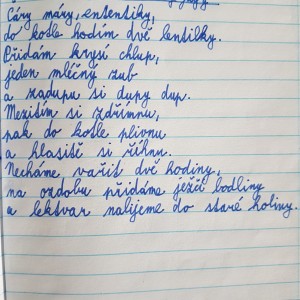 Čáry máry, ententiky,
do kotle hodím dvě lentilky.
Přidám krysí chlup,
jeden mléčný zub
a zadupu si dupy dup.
Mezitím si zdřímnu,
pak do kotle plivnu
a hlasitě si říhnu.
Necháme, vařit dvě hodiny,
na ozdobu přidáme ježčí bodliny
a lektvar nalijeme do staré holiny.